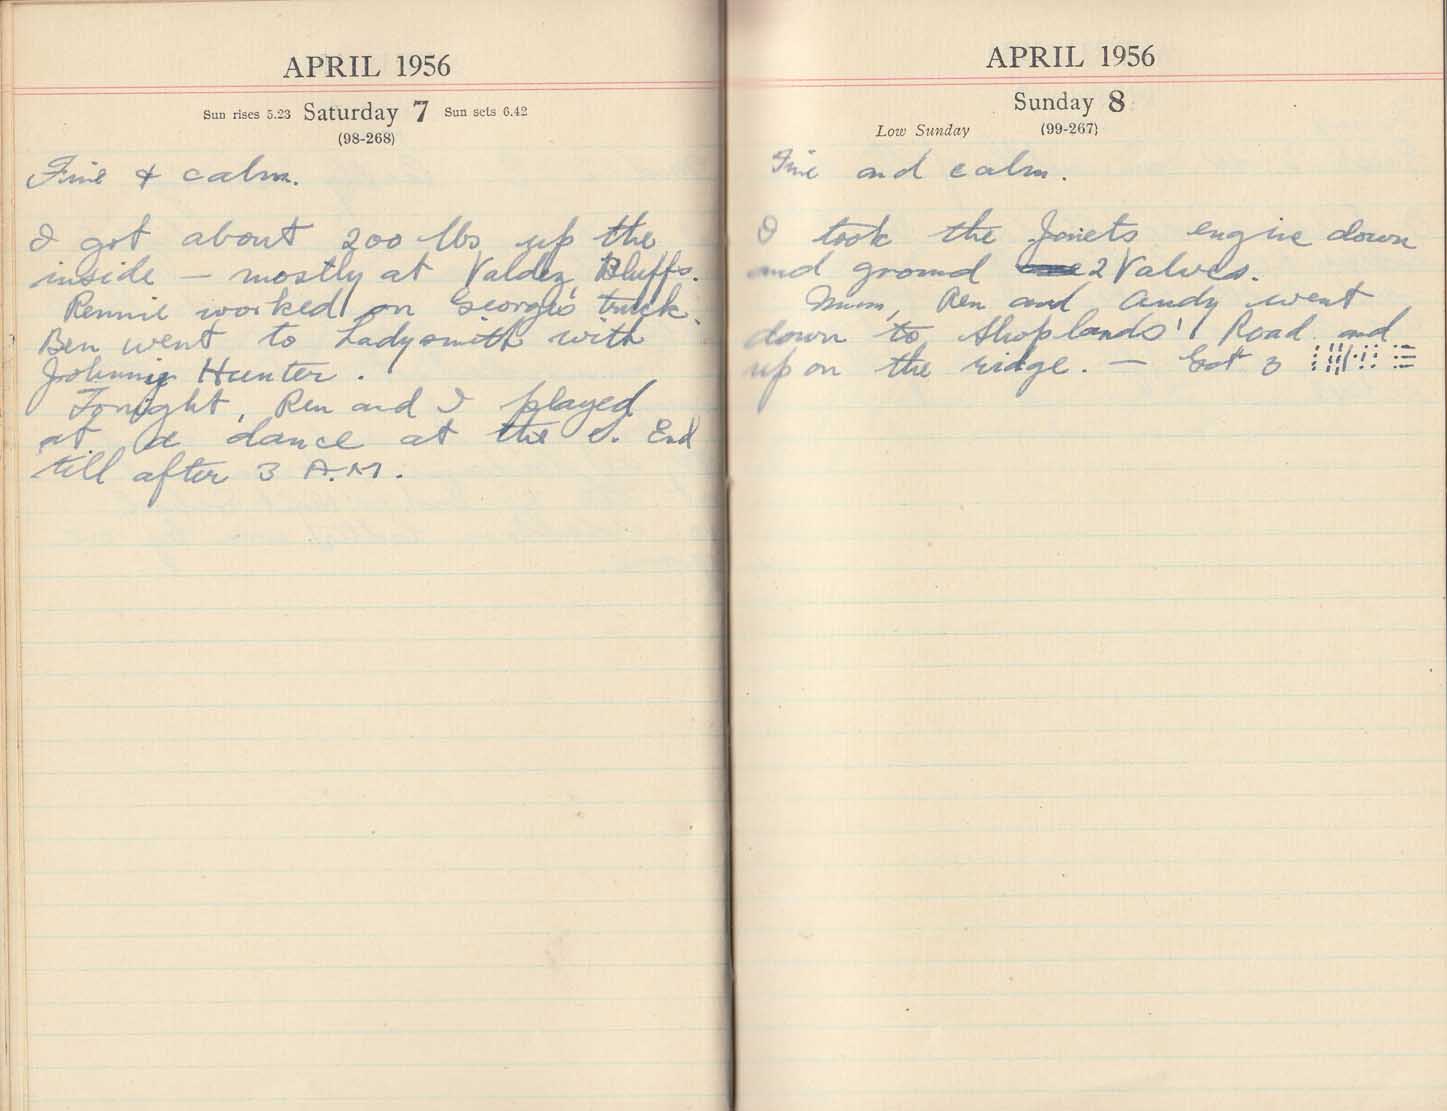 APRIL 1956
Sun rises 5.23 Saturday 7 Sun sets 6.42
(98-268)
Fine & calm.
I got about 200 lbs up the
inside – mostly at Valdez Bluffs.
Rennie worked on George's truck.
Ben went to Ladysmith with
Johnnie Hunter.
Tonight, Ren and I played
at a dance at the S. End
till after 3 A.M.
APRIL 1956
Sunday 8
Low Sunday (99-267)
Fine and calm.
I took the Janets engine down
and ground 2 Valves.
Mum, Ren and Andy went
down to Shoplands' Road and
up on the ridge. – Got 3